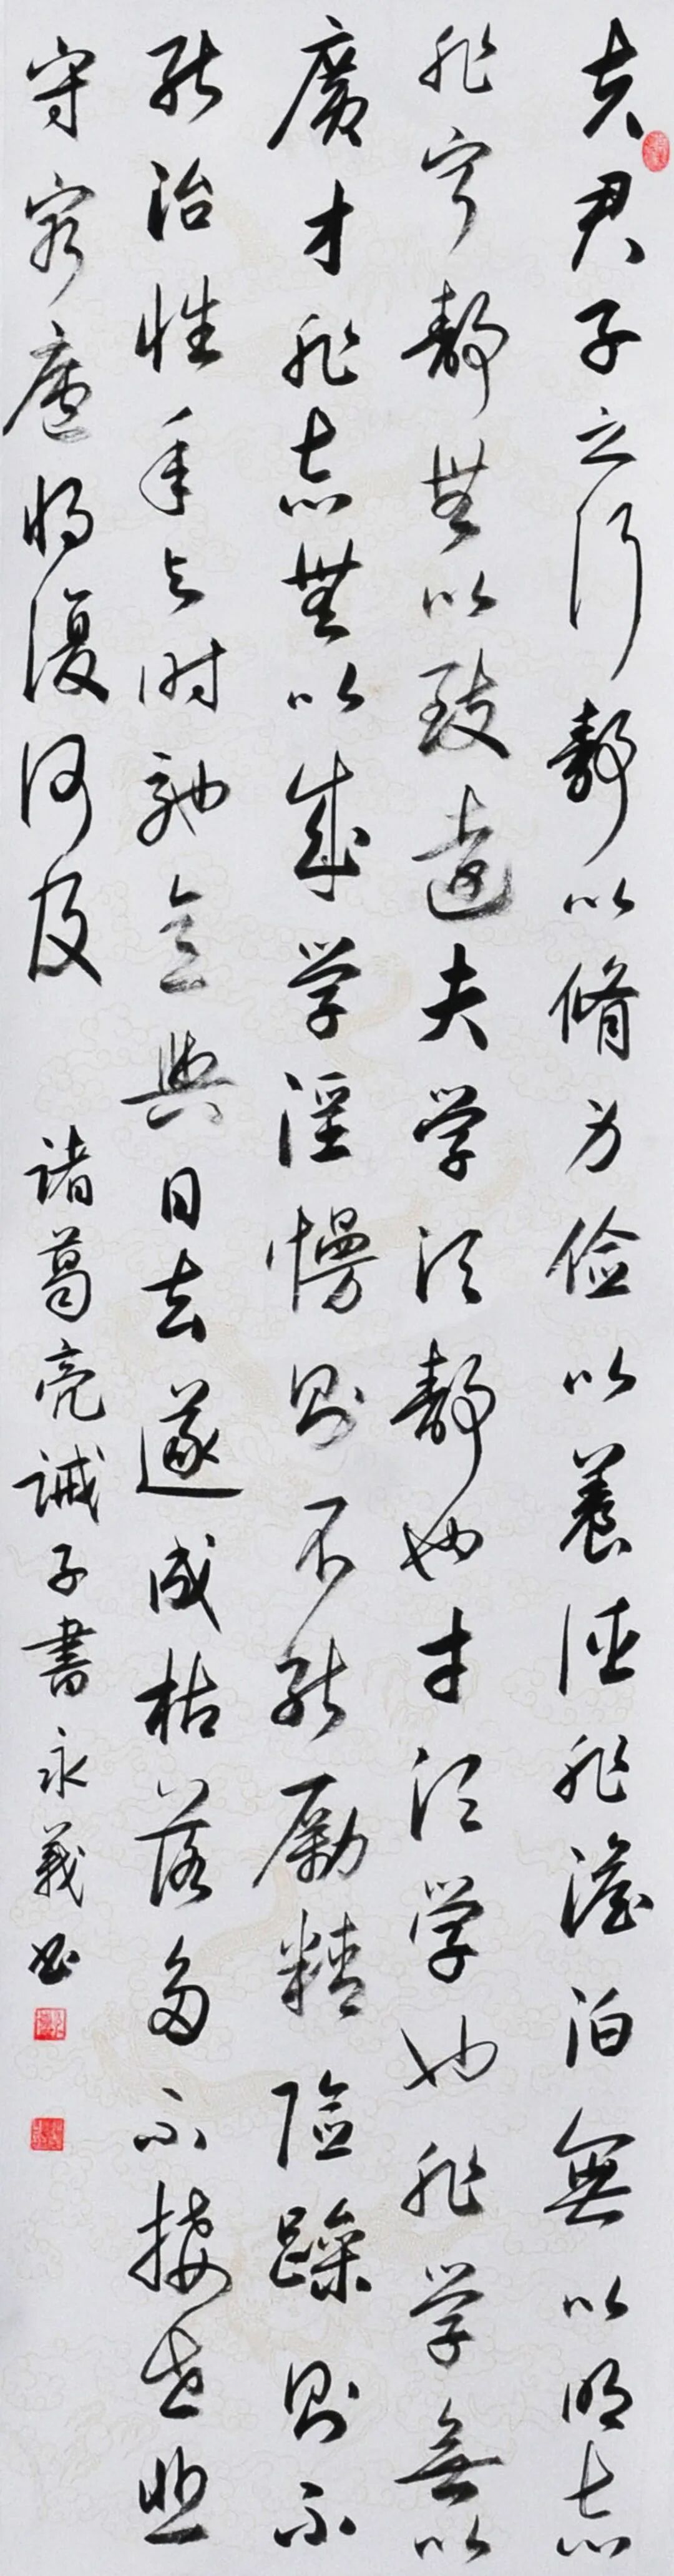 夫君子之行静以脩身俭以養德非澹泊無以明志
非宁静無以致遠夫学须静也才须学也非学無以
廣才非志無以成学淫慢则不能勵精险躁则不
能治性年与时驰意與日去遂成枯落多不接世悲
守窮廬将復何及 诸葛亮誡子書永義书